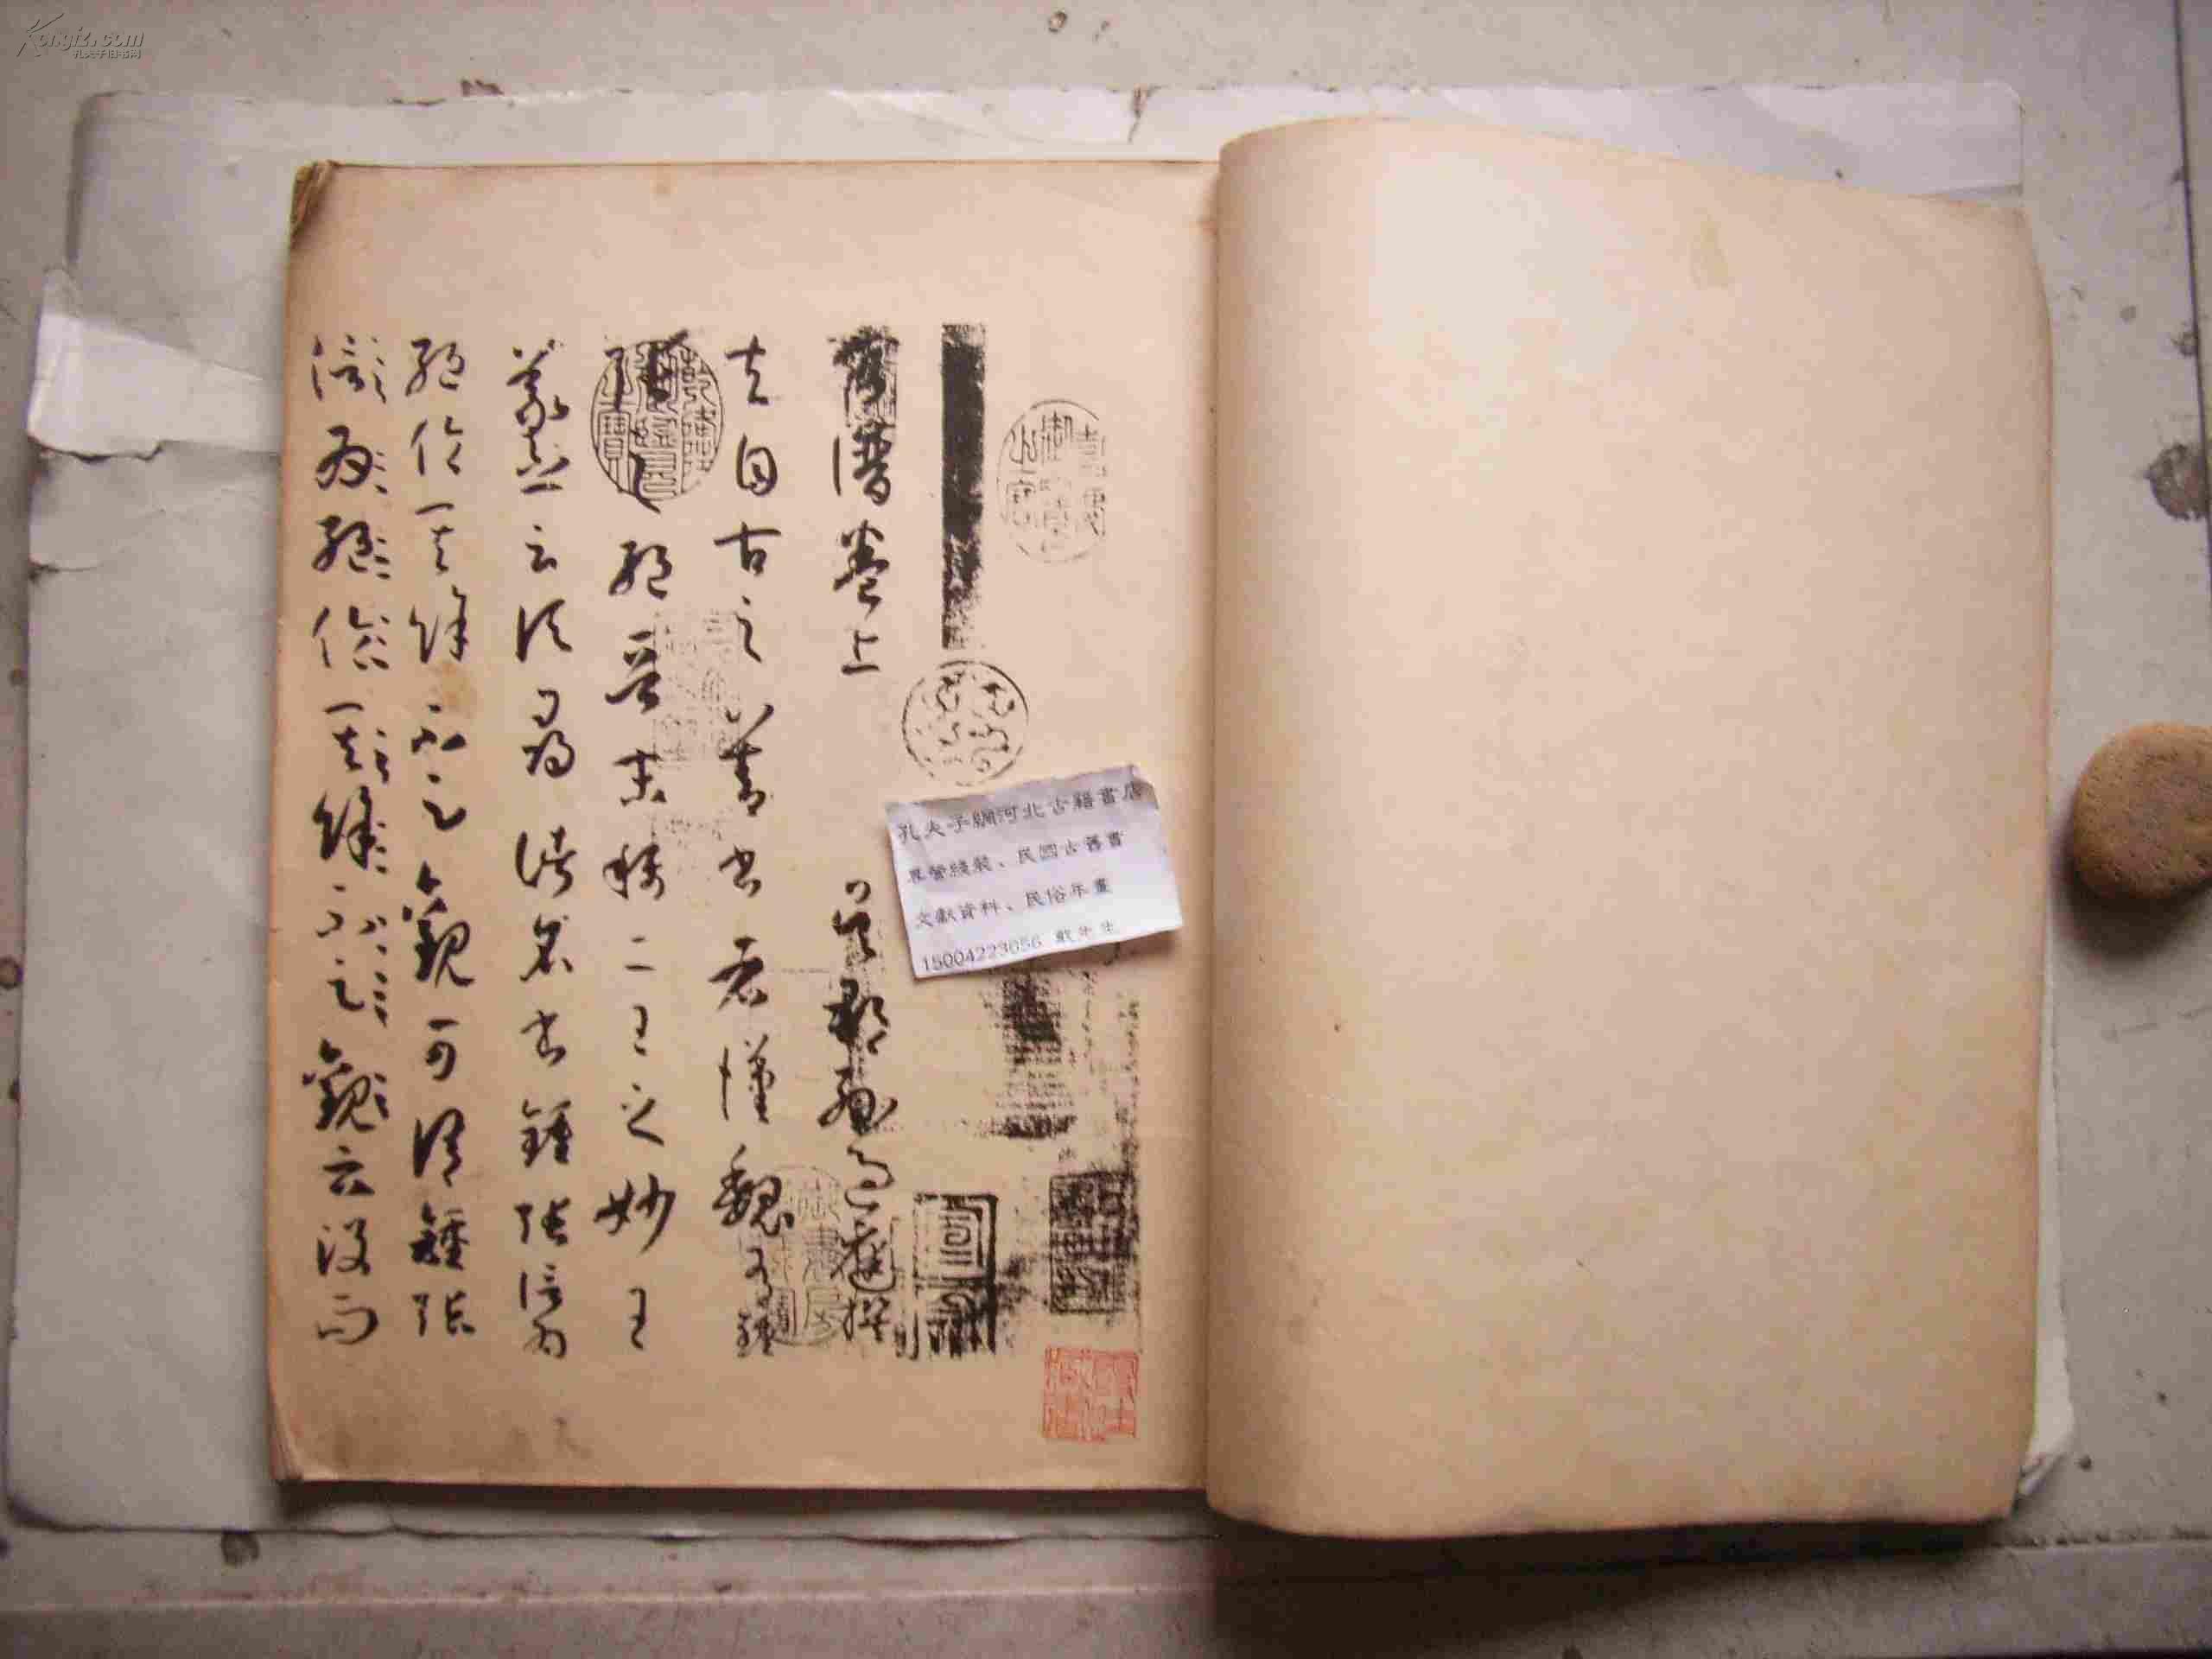 Kongfz.com
孔夫子旧书网
書譜卷上 吳郡孫過庭撰
夫自古之善書者漢魏有鍾
張之絕晉末稱二王之妙王
羲之云頃尋諸名書鍾張信為
絕倫其餘不足觀可謂鍾張
信為絕倫其餘不足觀云沒而
孔夫子網河北古籍書店
專營綫裝、民國古舊書
文獻資料、民俗年畫
15004223656 戴先生